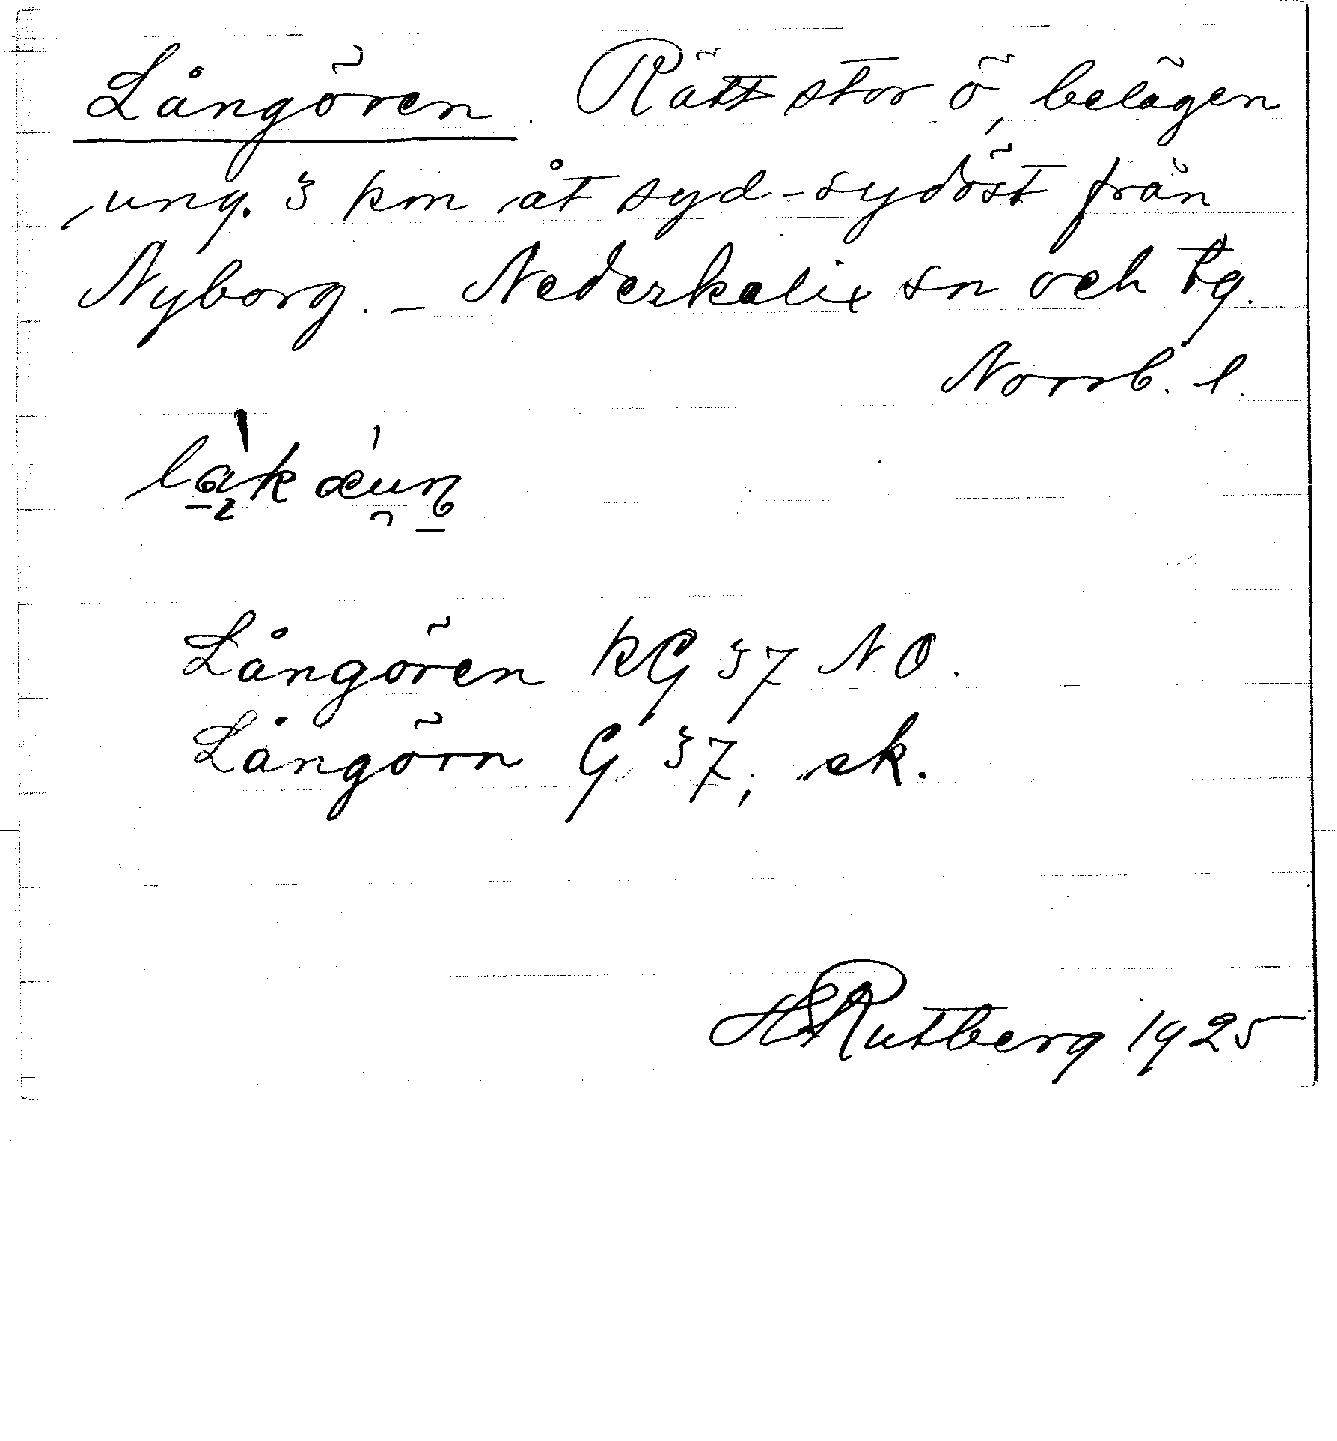 Långören. Rätt stor ö, belägen
ung. 3 km åt syd-sydöst från
Nyborg. – Nederkalix sn och tg.
Norrb. l.
Långören KG 37 NO.
Långörn G 37, ek.
H Rutberg 1925